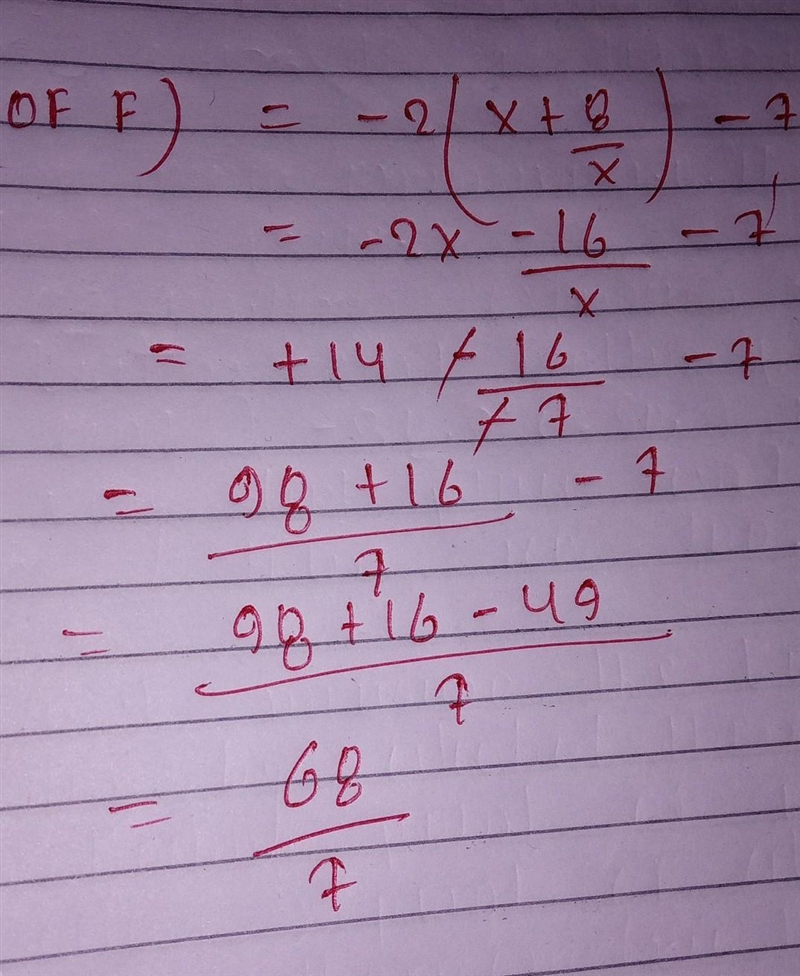 OF F) = -2(x + 8/x) - 7
= -2x - 16/x - 7
= +14 - 16/-7 - 7
= 98 + 16/7 - 7
= 98 + 16 - 49/7
= 68/7